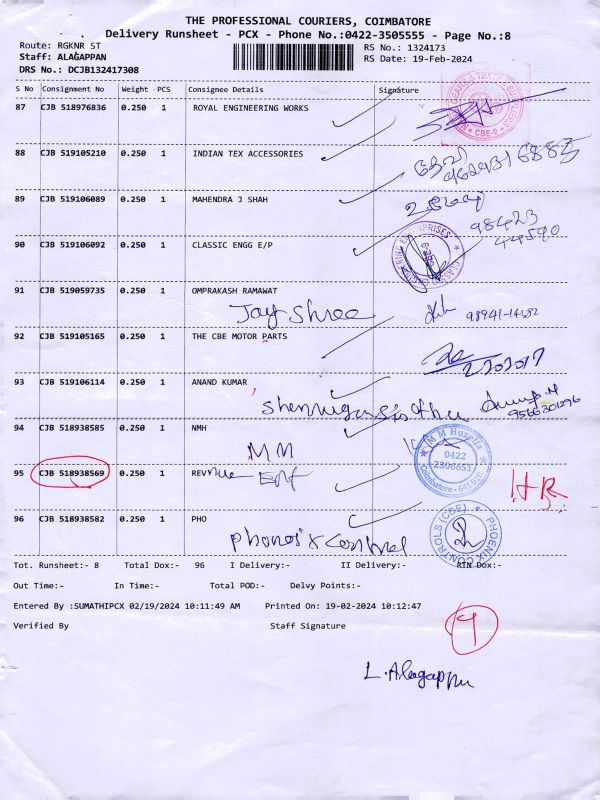 THE PROFESSIONAL COURIERS, COIMBATORE
Delivery Runsheet - PCX - Phone No.:0422-3505555 - Page No.:8
Route: RGKNR ST RS No.: 1324173
Staff: ALAGAPPAN RS Date: 19-Feb-2024
DRS No.: DCJB132417308
S No Consignment No Weight PCS Consignee Details Signature
87 CJB 518976836 0.250 1 ROYAL ENGINEERING WORKS
CBE-9
88 CJB 519105210 0.250 1 INDIAN TEX ACCESSORIES
89 CJB 519106089 0.250 1 MAHENDRA J SHAH
98423
44590
90 CJB 519106092 0.250 1 CLASSIC ENGG E/P
91 CJB 519059735 0.250 1 OMPRAKASH RAMAWAT
Jay Shree
92 CJB 519105165 0.250 1 THE CBE MOTOR PARTS
93 CJB 519106114 0.250 1 ANAND KUMAR
9566301296
94 CJB 518938585 0.250 1 NMH
MM
M M Huzefa
0422
2306651
95 CJB 518938569 0.250 1 REVnue Ent
HR
96 CJB 518938582 0.250 1 PHO
control
PHOENIX CONTROLS (CBE)
Tot. Runsheet:- 8 Total Dox:- 96 I Delivery:- II Delivery:- RTN Dox:-
Out Time:- In Time:- Total POD:- Delvy Points:-
Entered By :SUMATHIPCX 02/19/2024 10:11:49 AM Printed On: 19-02-2024 10:12:47
Verified By Staff Signature
9
L. Alagappn